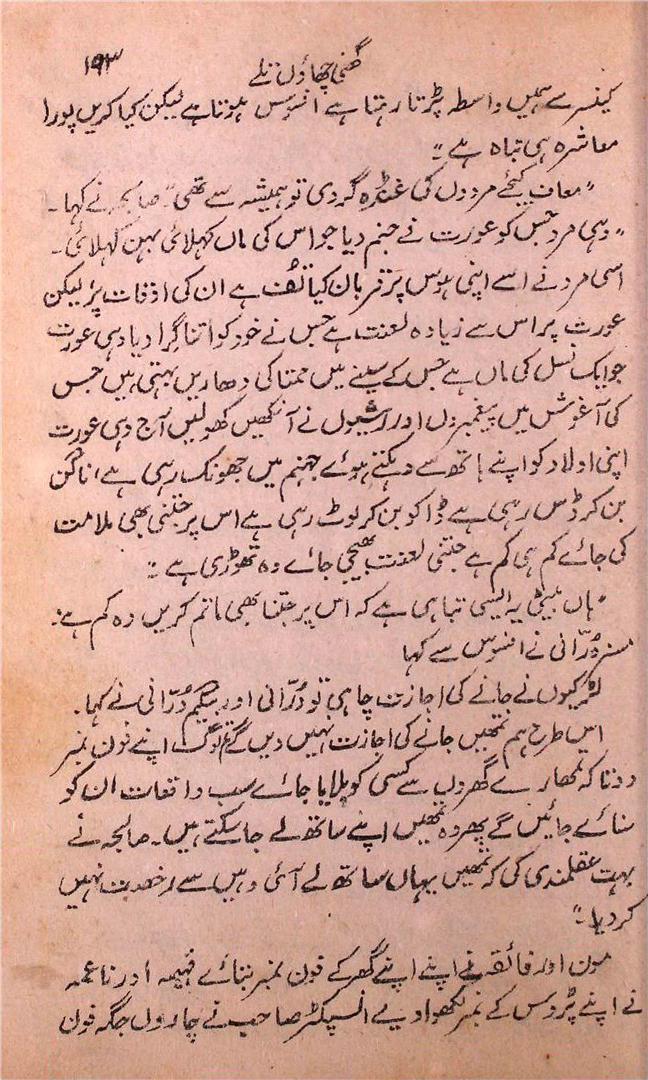 گھنی چھاؤں تلے ۱۹۳
کینسر سے ہمیں واسطہ پڑتا رہتا ہے افسوس ہوتا ہے لیکن کیا کریں پورا
معاشرہ ہی تباہ ہے "
" معاف کیجئے مردوں کی غنڈہ گردی تو ہمیشہ سے تھی " صالحہ نے کہا ۔
" وہی مرد جس کو عورت نے جنم دیا جو اس کی ماں کہلائی بہن کہلائی ۔
اسی مرد نے اسے اپنی ہوس پر قربان کیا تف ہے ان کی اوقات پر لیکن
عورت پر اس سے زیادہ لعنت ہے جس نے خود کو اتنا گرا دیا وہی عورت
جو ایک نسل کی ماں ہے جس کے سینے میں ممتا کی دھاریں بہتی ہیں جس
کی آغوش میں پیغمبروں اور رشیوں نے آنکھیں کھولیں آج وہی عورت
اپنی اولاد کو اپنے ہاتھ سے دہکتے ہوئے جہنم میں جھونک رہی ہے ناگن
بن کر ڈس رہی ہے ڈاکو بن کر لوٹ رہی ہے اس پر جتنی بھی ملامت
کی جائے کم ہی کم ہے جتنی لعنت بھیجی جائے وہ تھوڑی ہے "
" ہاں بیٹی یہ ایسی تباہی ہے کہ اس پر جتنا بھی ماتم کریں وہ کم ہے "
مسز درّانی نے افسوس سے کہا
لڑکیوں نے جانے کی اجازت چاہی تو درّانی اور بیگم درّانی نے کہا ۔
اس طرح ہم تمھیں جانے کی اجازت نہیں دیں گے تم لوگ اپنے فون نمبر
دو تاکہ تمھارے گھروں سے کسی کو بلایا جائے سب واقعات ان کو
سنائے جائیں گے پھر وہ تمھیں اپنے ساتھ لے جا سکتے ہیں ۔ صالحہ نے
بہت عقلمندی کی کہ تمھیں یہاں ساتھ لے آئی وہیں سے رخصت نہیں
کر دیا "
مون اور فائقہ نے اپنے اپنے گھر کے فون نمبر بتائے فہیمہ اور ناعمہ
نے اپنے پڑوس کے نمبر لکھوا دیے انسپکٹر صاحب نے چاروں جگہ فون